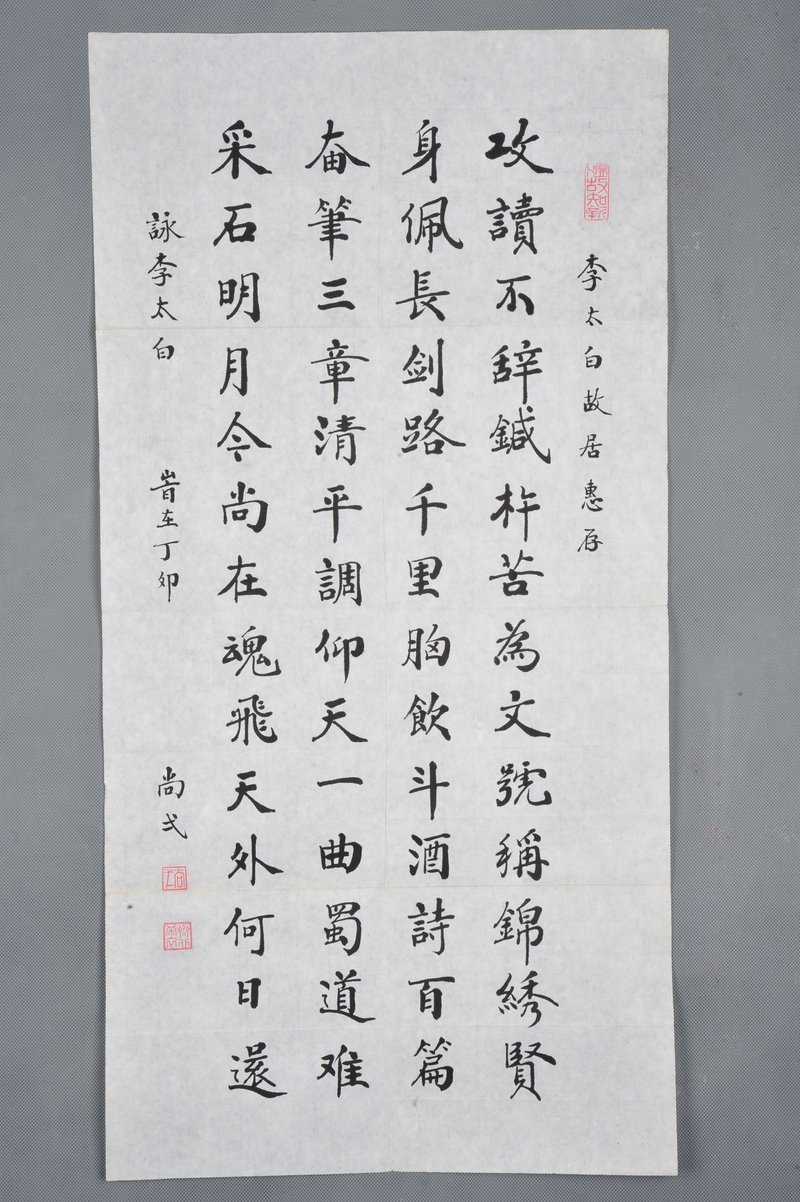 溫故知新
李太白故居惠存
攻讀不辞鍼杵苦為文號稱錦綉賢
身佩長剑路千里胸飲斗酒詩百篇
奋筆三章清平調仰天一曲蜀道难
采石明月今尚在魂飛天外何日還
詠李太白
时在丁卯
尚弋